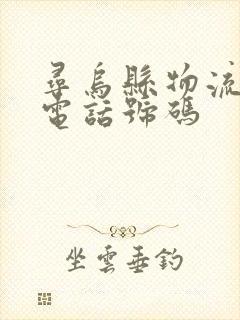 尋烏縣物流
電話號碼
坐雲垂釣